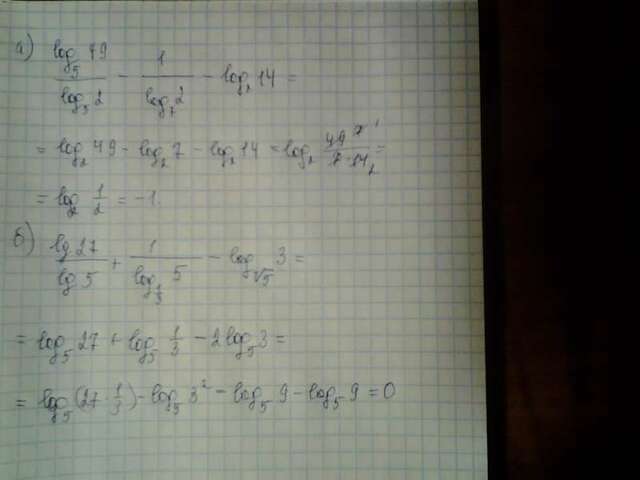 а) log₅49/log₅2 - 1/log₇2 - log₂14 =
= log₂49 - log₂7 - log₂14 = log₂ 49⁷ ¹/7·14₂ =
= log₂ 1/2 = -1.
б) lg27/lg5 + 1/log_{1/3}5 - log_{√5}3 =
= log₅27 + log₅ 1/3 - 2log₅3 =
= log₅(27·1/3) - log₅3² = log₅9 - log₅9 = 0